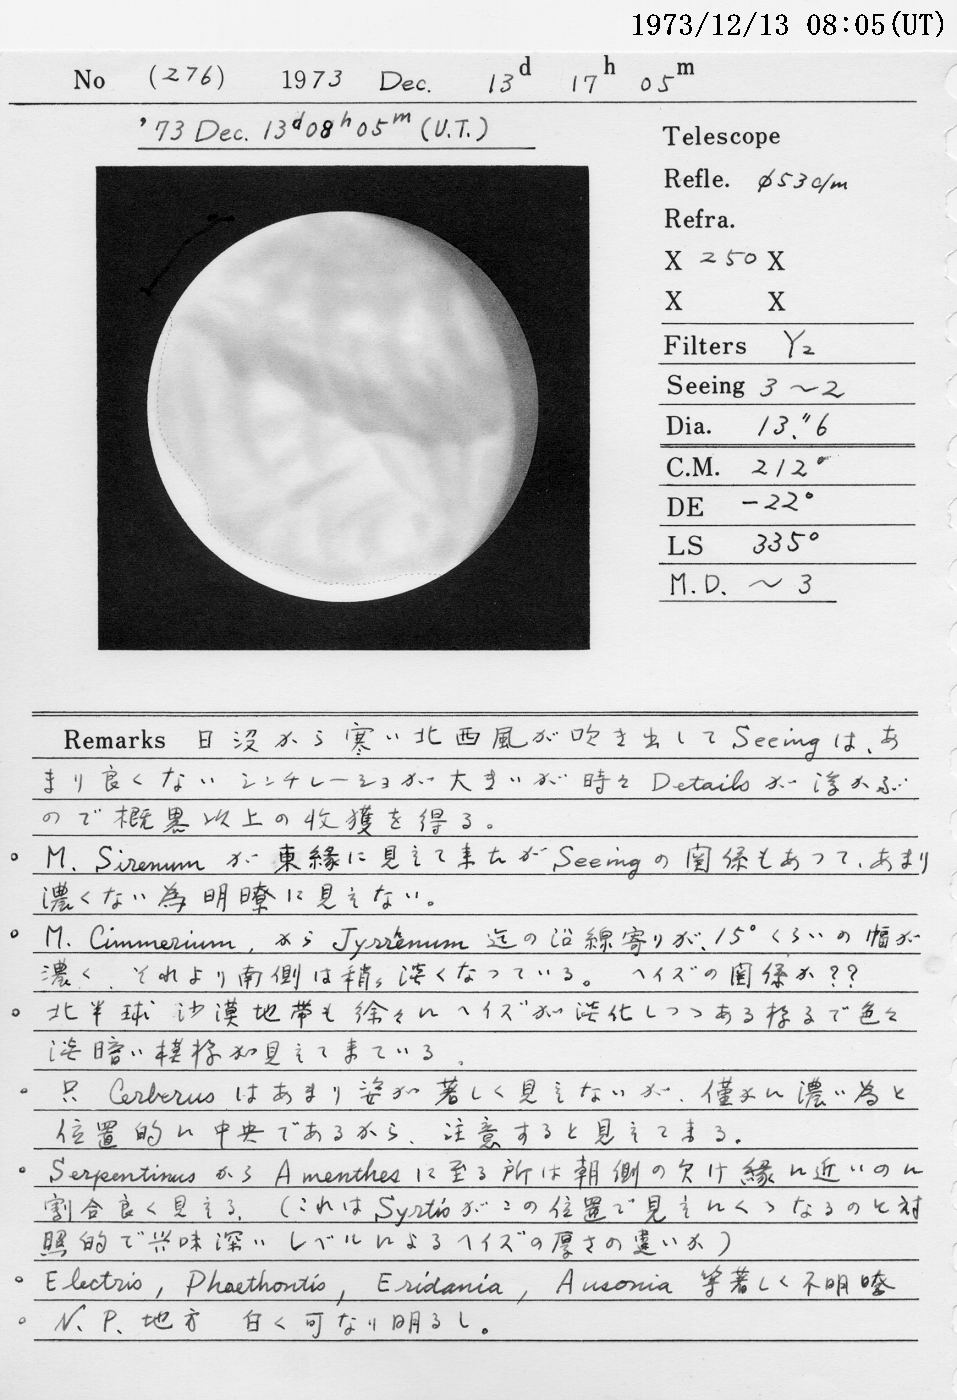 1973/12/13 08:05(UT)
No (276) 1973 Dec. 13d 17h 05m
'73 Dec. 13d08h05m (U.T.)
Telescope
Refle. φ53c/m
Refra.
X 250 X
X X
Filters Y2
Seeing 3～2
Dia. 13."6
C.M. 212°
DE -22°
LS 335°
M.D. ～3
Remarks 日没から寒い北西風が吹き出してSeeingは、あ
まり良くない シンチレーションが大きいが時々Detailsが浮かぶ
ので概略以上の収獲を得る。
。M. Sirenumが東縁に見えて来たがSeeingの関係もあって、あまり
濃くない為明瞭に見えない。
。M. Cimmerium, からTyrrhenum迄の沿線寄りが、15°くらいの幅が
濃く、それより南側は稍々淡くなっている。ヘイズの関係か??
。北半球沙漠地帯も徐々にヘイズが淡化しつつある様るで色々
淡暗い模様が見えて来ている。
。只Cerberusはあまり姿が著しく見えないが、僅かに濃い為と
位置的に中央であるから、注意すると見えてまる。
。SerpentinusからAmenthesに至る所は朝側の欠け縁に近いのに
割合良く見える。(これはSyrtisがこの位置で見えにくくなるのと対
照的で興味深い レベルによるヘイズの厚さの違いか)
。Electris, Phaethontis, Eridania, Ausonia 等著しく不明瞭
。N.P.地方 白く可なり明るし。